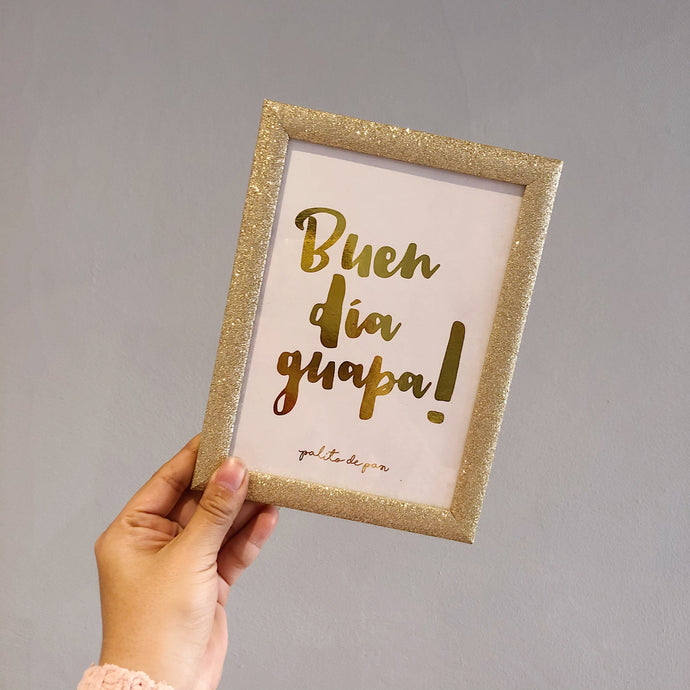 Buen
día
guapa!
palito de pan